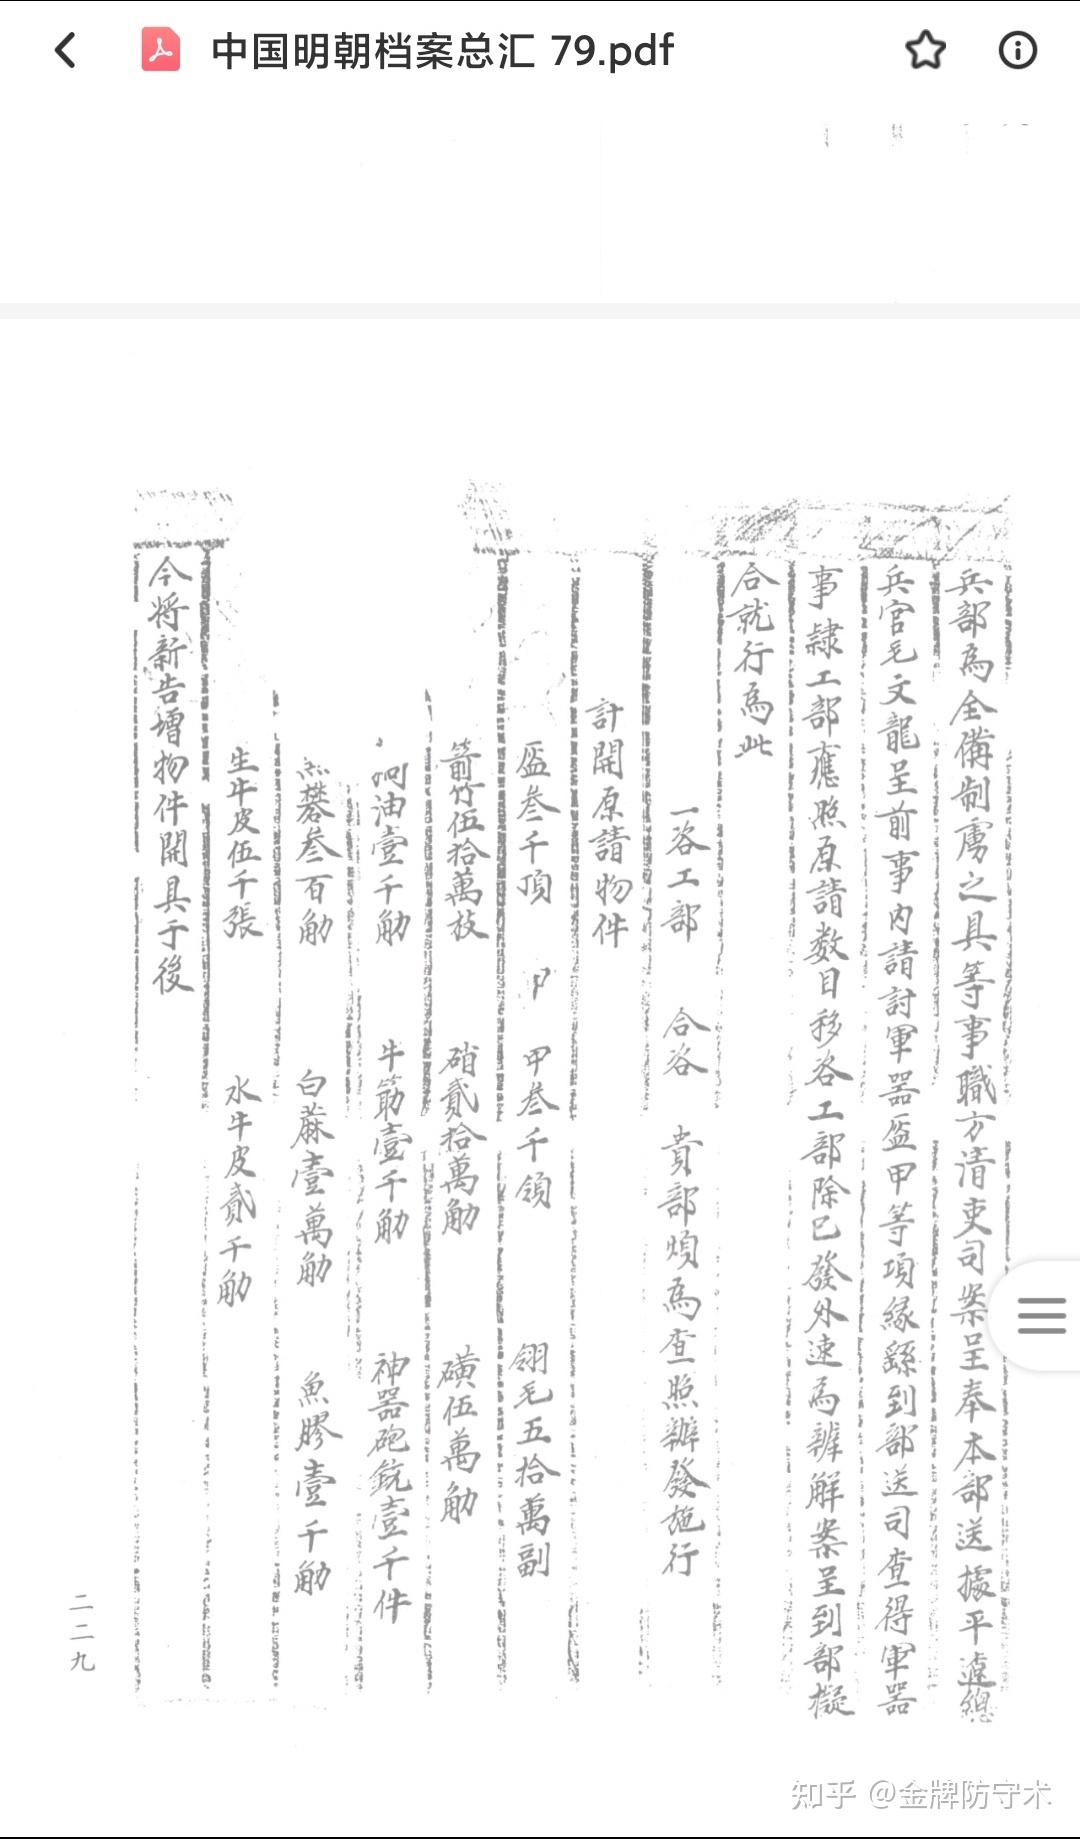 中国明朝档案总汇 79.pdf
兵部為全備制虜之具等事職方清吏司案呈奉本部送據平遼總
兵官毛文龍呈前事內請討軍器盔甲等項緣繇到部送司查得軍器
事隸工部應照原請数目移咨工部除已發外速為辦解案呈到部擬
合就行為此
一咨工部 合咨 貴部煩為查照辦發施行
計開原請物件
盔叁千頂 甲叁千領 翎毛五拾萬副
箭竹伍拾萬枝 硝貳拾萬觔 磺伍萬觔
油壹千觔 牛筋壹千觔 神器砲銃壹千件
礬叁百觔 白蔴壹萬觔 魚膠壹千觔
生牛皮伍千張 水牛皮貳千觔
今將新告增物件開具于後
二二九
知乎 @金牌防守术